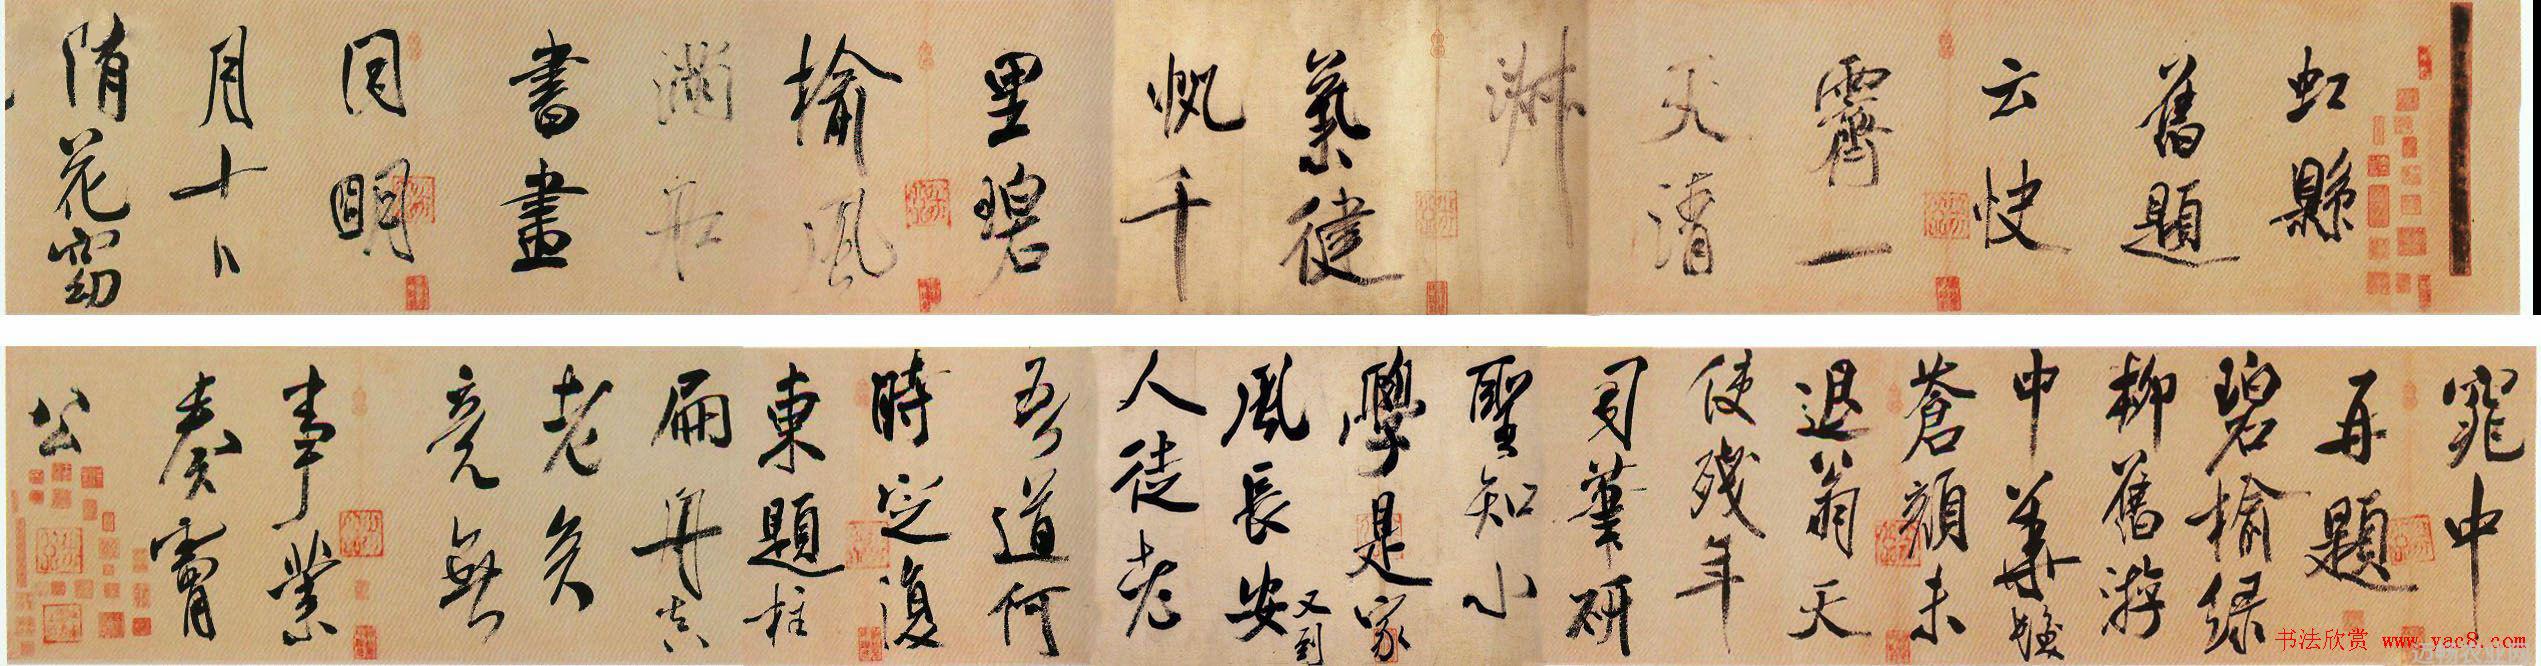 虹縣
舊題
云快
霽一
天清
淑
氣健
帆千
里碧
榆風
滿舡
書畫
同明
月十日
隋花窈
窕中
再題
碧榆緑
柳舊游
中華髮
蒼顔未
退翁天
使殘年
司筆研
聖知小
學是家
風長安又到
人徒老
吾道何
時定復
東題柱
扁舟真
老矣
竟無
事業
奏膚
公
书法欣赏 www.yac8.com